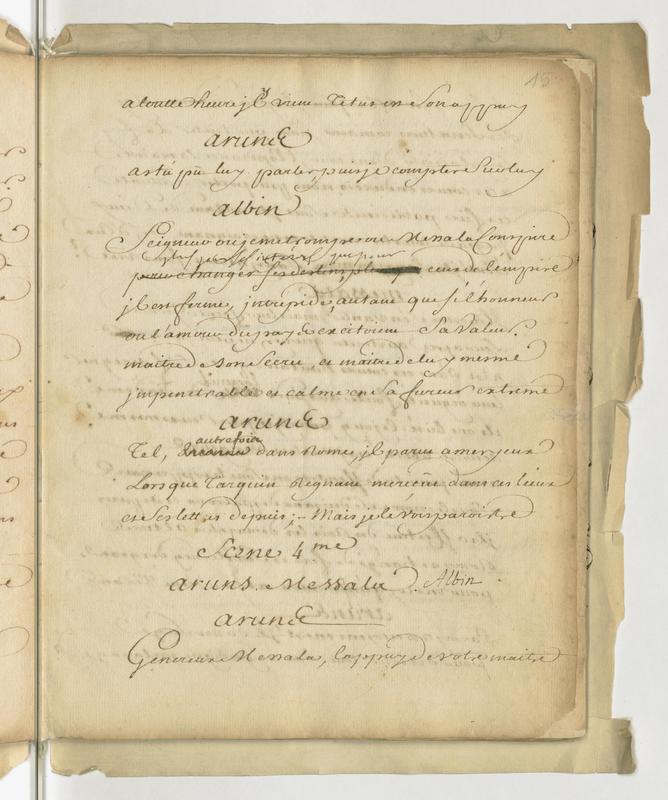 15
a toutte heure jl vient Titus est son appuy
aruns
as tu pû luy parler, puis je compter sur luy
albin
Seigneur ou je me trompe ou Messala Conspire
plus pour ses interets que pour
pour changer ses destins ceux de l'empire
jl est ferme, intrepide, autant que si l'honneur
ou l'amour du pays excitoient Sa Valeur.
maitre de son Secret, et maitre de luy mesme
jmpenetrable et calme en Sa fureur extreme
aruns
autrefois
Tel, dans Rome, jl parut a mes yeux
Lorsque Tarquin Regnant me recût dans ces lieux
et Ses lettres depuis; - Mais je le vois paroistre
Scene 4me
aruns. Messala. Albin
aruns
Genereux Messala, l'appuy de votre maitre